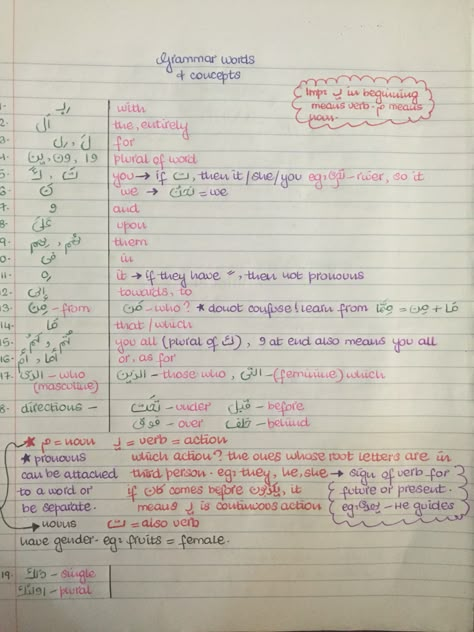 Grammar words
+ concepts
Imp: يـ in beginning
means verb. م means
noun.
بِـ with
2. اَل the, entirely
3. لَ, لِ for
4. وا, ون, ين plural of word
5. تَ, كَ you → if ت, then it/she/you eg:
6. نَ we → نَحْنُ = we
7. و and
8. عَلَىٰ upon
9. هُمْ, هِم them
0. فِى in
11. it → if they have , then not pronouns
12. اِلىٰ towards, to
13. مِنْ - from مَنْ - who? * donot confuse! learn from مِمَّا = مِنْ + مَا
14. مَا that/which
15. كُمْ, تُمْ you all (plural of كَ), و at end also means you all
16. اَمَّا, اَوْ or, as for
17. الذى - who الذين - those who, التى - (feminine) which
(masculine)
8. directions - تَحْتَ - under قَبْل - before
فَوْقَ - over خَلْفَ - behind
* م = noun يـ = verb = action
* pronouns which action? the ones whose root letters are in
can be attached third person. eg: they, he, she → sign of verb for
to a word or if كَانَ comes before, it future or present.
be separate. means يـ is continuous action eg: يَهْدِى - He guides
→ nouns ت = also verb
have gender. eg: fruits = female.
19. ذٰلِكَ - single
اُولٰئِكَ - plural